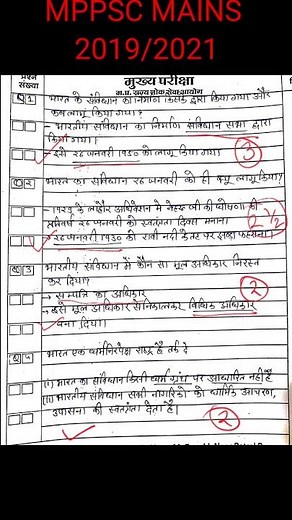 MPPSC MAINS
2019/2021
प्रश्न
संख्या
मुख्य परीक्षा
म.प्र. राज्य लोक सेवा आयोग
Q 1
भारत के संविधान का निर्माण किसके द्वारा किया गया और
कब लागू किया गया?
→ भारतीय संविधान का निर्माण संविधान सभा द्वारा
किया गया।
→ इसे २६ जनवरी १९५० को लागू किया गया।
3
Q 2
भारत का संविधान २६ जनवरी को ही क्यू लागू किया?
- १९२९ के लाहौर अधिवेशन में नेहरू जी की घोषणा की
प्रतिवर्ष २६ जनवरी को स्वतंत्रता दिवस मनाना
→ २६ जनवरी १९३० को रावी नदी के तट पर झण्डा फहराना।
2 1/2
Q 3
भारतीय संविधान में कौन सा मूल अधिकार निरस्त
कर दिया?
→ सम्पत्ति का अधिकार
→ इसे मूल अधिकार से निकालकर विधिक अधिकार
बना दिया।
2
Q 4
भारत एक धर्मनिरपेक्ष राष्ट्र है तर्क दे
(i) भारत का संविधान किसी धर्म ग्रंथ पर आधारित नहीं है
(ii) भारतीय संविधान सभी नागरिको को धार्मिक आचरण,
उपासना की स्वतंत्रता देता है।
2